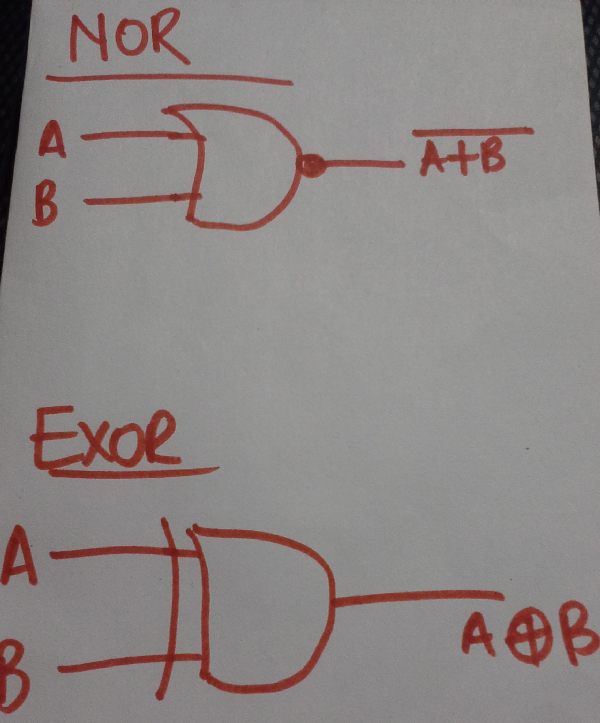 NOR
A
B
A+B
EXOR
A
B
A⊕B